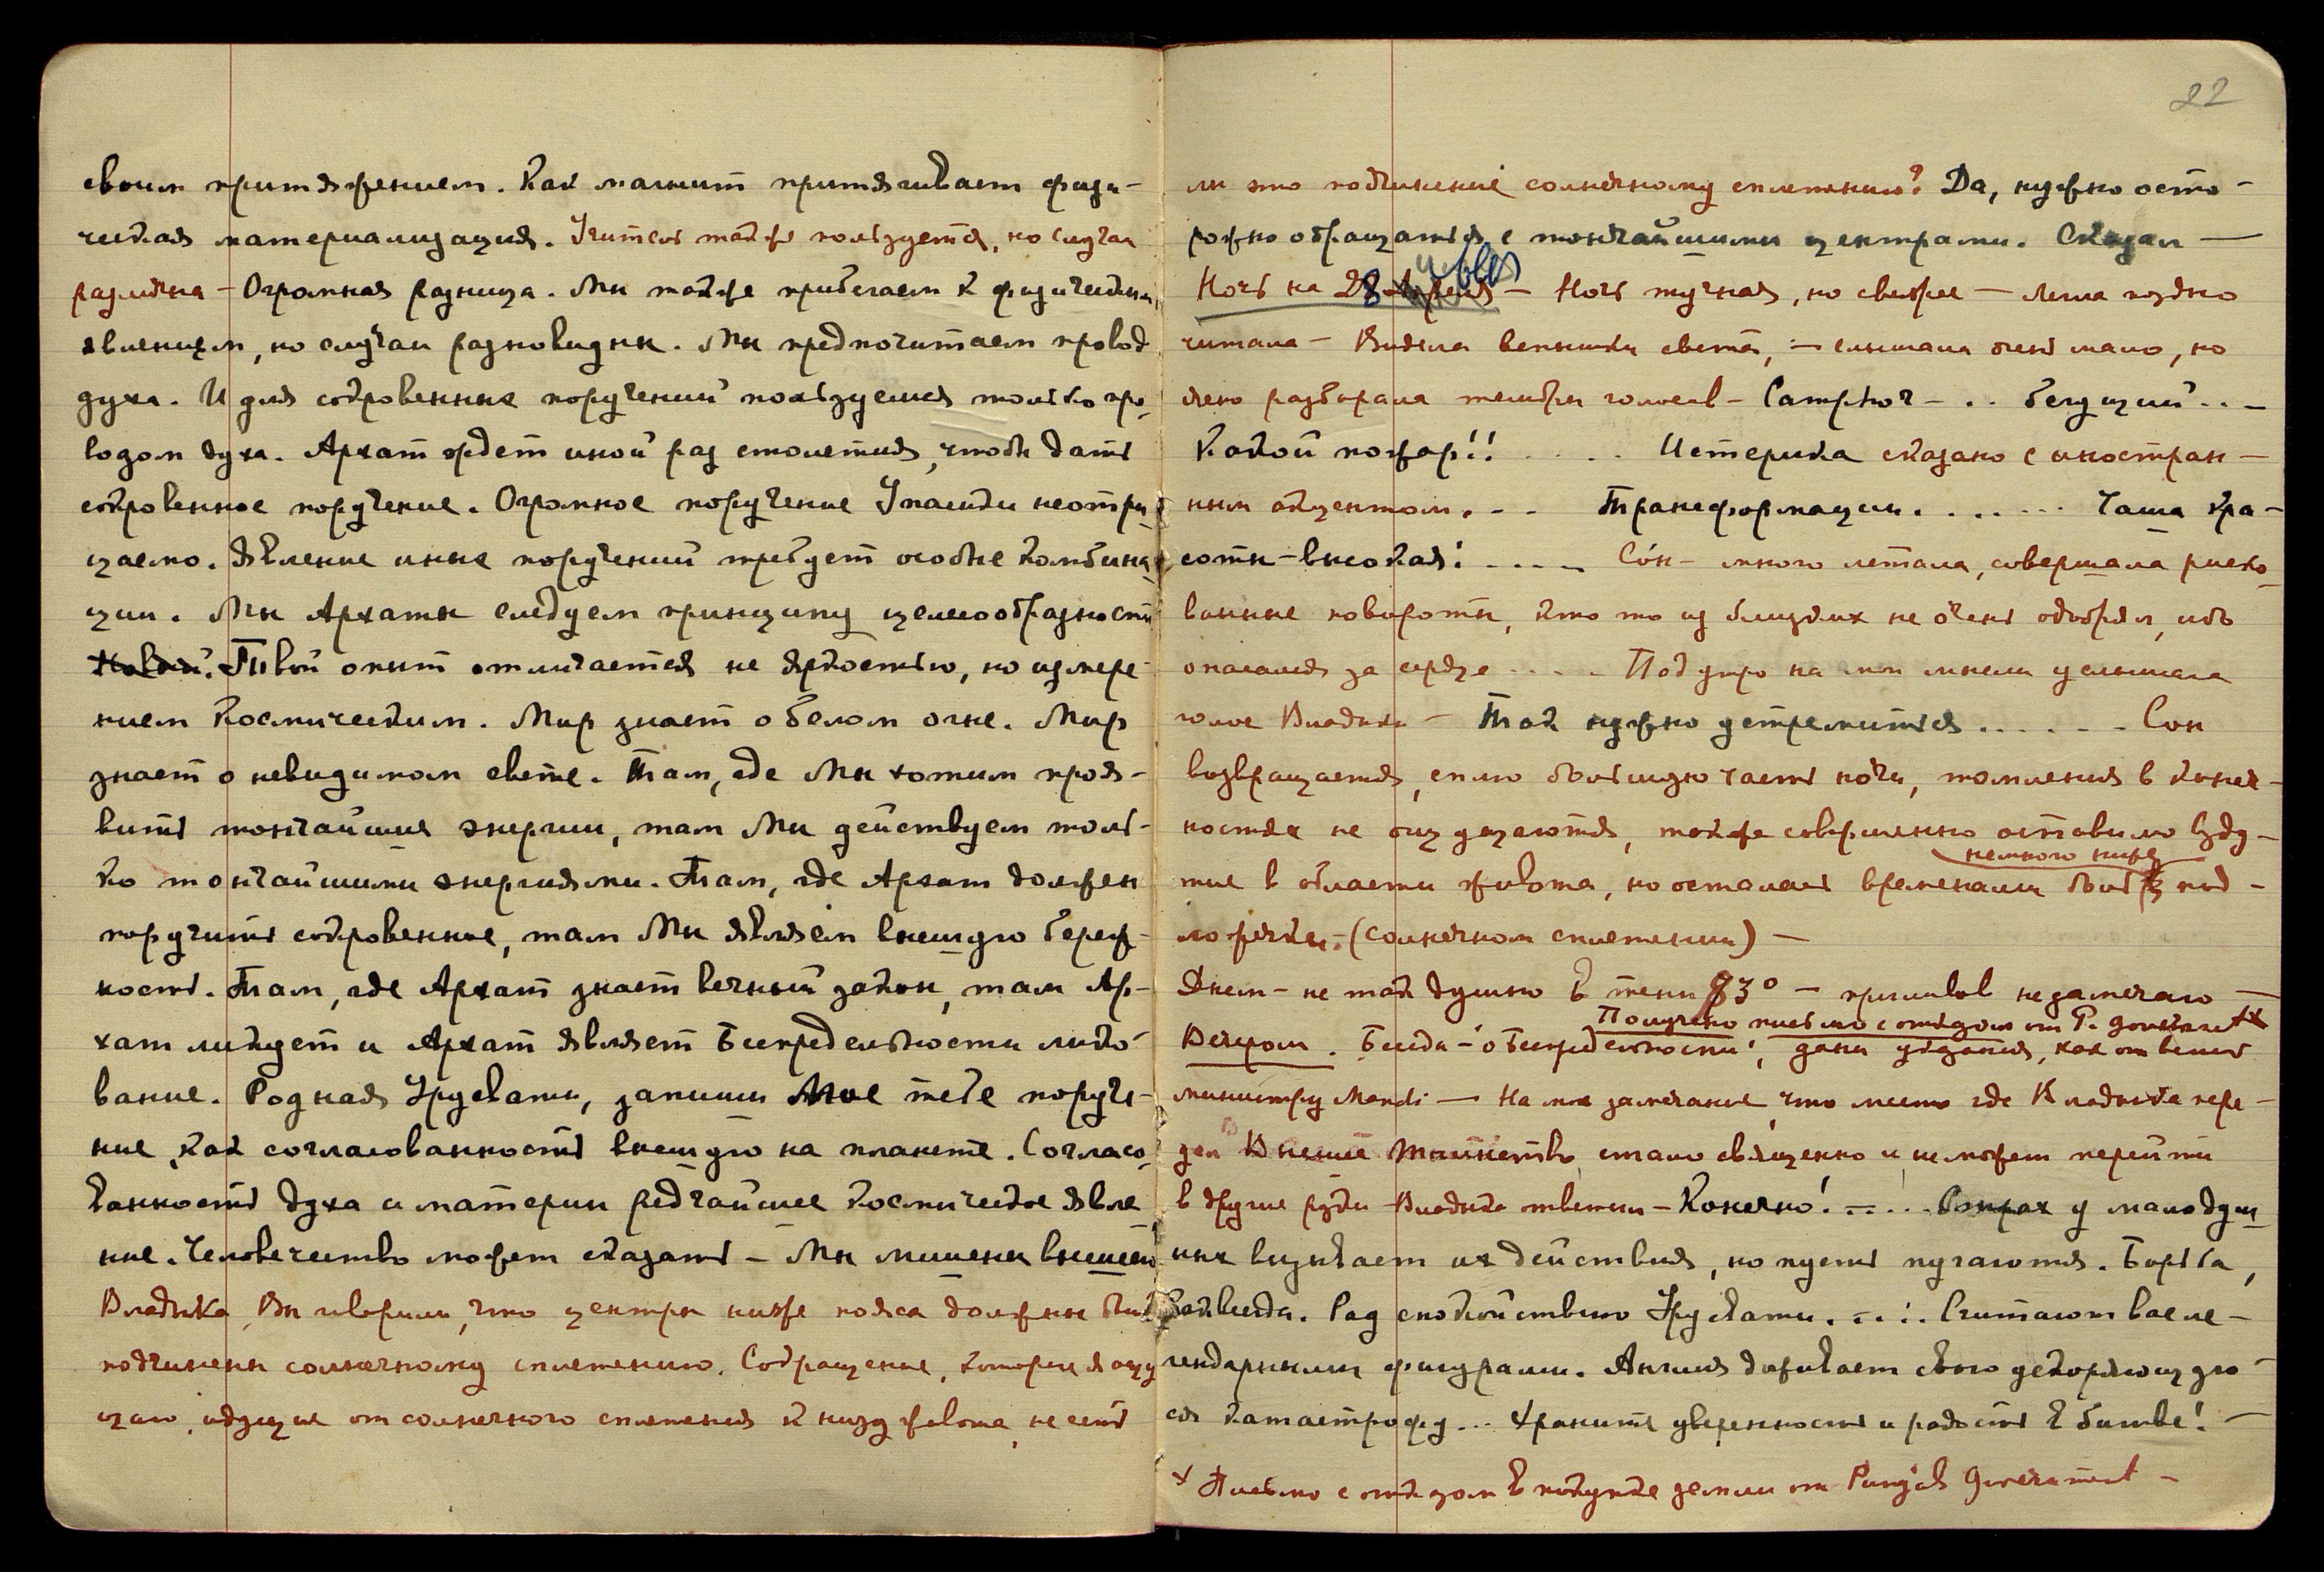 своим притяжением. Как магнит притягивает физи-
ческая материализация. Учитель также пользуется, но случаи
различны – Огромная разница. Мы также прибегаем к физическим
явлениям, но случаи разновидны. Мы предпочитаем провод
духа. И для сокровенных поручений пользуемся только про-
водом духа. Архат ждет иной раз столетия, чтобы дать
сокровенное поручение. Огромное поручение Упасики неотри-
цаемо. Явление иных поручений требует особые комбина-
ции. Мы Архаты следуем принципу целесообразности
Твой опыт отличается не яркостью, но измере-
нием Космическим. Мир знает о белом огне. Мир
знает о невидимом свете. Там, где Мы хотим проя-
вить тончайшие энергии, там Мы действуем толь-
ко тончайшими энергиями. Там, где Архат должен
поручить сокровенное, там Мы являем высшую береж-
ность. Там, где Архат знает вечный закон, там Ар-
хат ликует и Архат являет Беспредельности лико-
вание. Родная Урусвати, запиши Мое тебе поруче-
ние, как согласованность высшую на планете. Согласо-
ванность духа и материи редчайшее Космическое явле
ние. Человечество может сказать – Мы лишены высшего
Владыка, Вы говорили, что центры ниже пояса должны быть
подчинены солнечному сплетению. Сокращение, которые я ощу
щаю, идущие от солнечного сплетения к низу живота, не есть
22
ли это подчинение солнечному сплетению? Да, нужно осто-
рожно обращаться с тончайшими центрами. Сказал —
Ночь на 28 – Ночь тучная, но свежее – легла поздно
читала – Видела вспышки света, – слышала очень мало, но
ясно разбирала тембры голосов – Camphor – . . бегущий . . –
Какой пожар!! . . . . . Истерика сказано с иностран-
ным акцентом. . – Трансформации. . . . . . . Чаша кра-
соты – высокая! . . . . . Сон – много летала, совершала риско-
ванные повороты, кто то из близких не очень одобрял, ибо
опасался за сердце . . . . Под утро на мои мысли услышала
голос Владыки – Так нужно устремиться . . . . . . Сон
возвращается, сплю большую часть ночи, томления в конеч-
ностях не ощущаются, также совершенно оставило взду-
немного ниже
тие в области живота, но осталась временами боль под-
ложечки. (солнечном сплетении) —
Днем – не так душно в тени 83° – приливов не замечаю —
Получено письмо с отказом от P. government x
Вечером. Беседа – о Беспредельности, даны указания, как ответить
министру Mandi — На мое замечание, что место где Владыка пере-
дал Высшее Таинство, стало священно и не может перейти
в другие руки – Владыка ответил – Конечно! . . . . Страх у малодуш-
ных вызывает их действия, но пусть пугаются. Борьба,
как всегда. Рад спокойствию Урусвати. . . . Считают вас ле-
гендарными фигурами. Англия доживает свою ускоряющую-
ся катастрофу . . Храните уверенность и радость в битве! —
x Письмо с отказом в покупке земли от Punjab Government –